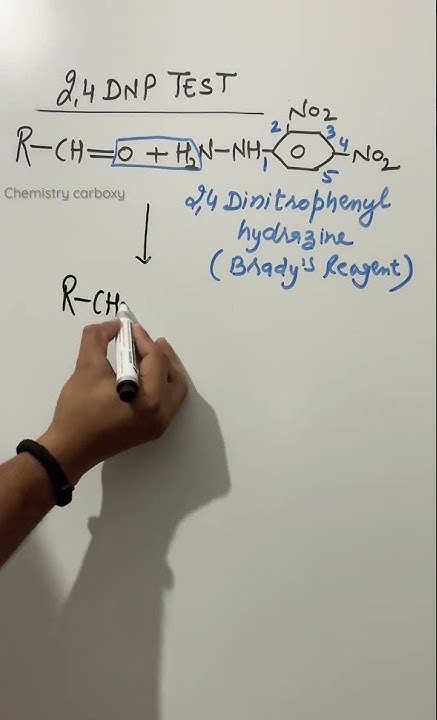 2,4 DNP TEST
NO2
R-CH=O + H2N-NH 1 2 3 4 5 NO2
Chemistry carboxy
2,4 Dinitrophenyl
hydrazine
(Brady's Reagent)
R-CH